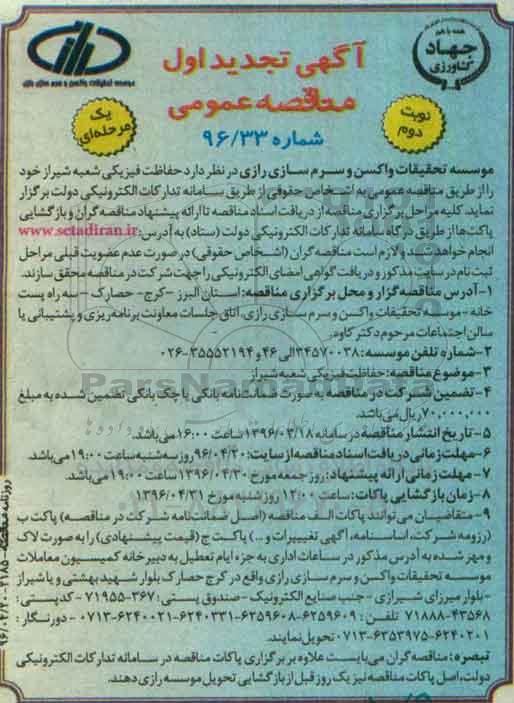 همه با هم
جهاد
کشاورزی
موسسه تحقیقات واکسن و سرم سازی رازی
آگهی تجدید اول
مناقصه عمومی
شماره ۹۶/۳۳
نوبت
دوم
یک
مرحله‌ای
موسسه تحقیقات واکسن و سرم سازی رازی در نظر دارد حفاظت فیزیکی شعبه شیراز خود
را از طریق مناقصه عمومی به اشخاص حقوقی از طریق سامانه تدارکات الکترونیکی دولت برگزار
نماید. کلیه مراحل برگزاری مناقصه از دریافت اسناد مناقصه تا ارائه پیشنهاد مناقصه گران و بازگشایی
پاکت‌ها از طریق درگاه سامانه تدارکات الکترونیکی دولت (ستاد) به آدرس: www.setadiran.ir
انجام خواهد شد و لازم است مناقصه گران (اشخاص حقوقی) در صورت عدم عضویت قبلی مراحل
ثبت نام در سایت مذکور و دریافت گواهی امضای الکترونیکی را جهت شرکت در مناقصه محقق سازند.
۱-آدرس مناقصه گزار و محل برگزاری مناقصه: استان البرز -کرج- حصارک - سه راه پست
خانه - موسسه تحقیقات واکسن و سرم سازی رازی. اتاق جلسات معاونت برنامه ریزی و پشتیبانی یا
سالن اجتماعات مرحوم دکتر کاوه.
۲-شماره تلفن موسسه: ۳۴۵۷۰۰۳۸ الی ۴۶ و ۳۵۵۵۲۱۹۴-۰۲۶
۳-موضوع مناقصه: حفاظت فیزیکی شعبه شیراز
۴-تضمین شرکت در مناقصه به صورت ضمانت نامه بانکی یا چک بانکی تضمین شده به مبلغ
۷۰,۰۰۰,۰۰۰ ریال می باشد.
۵-تاریخ انتشار مناقصه در سامانه ۱۳۹۶/۰۳/۱۸ ساعت ۱۶:۰۰ می باشد.
۶-مهلت زمانی دریافت اسناد مناقصه از سایت: ۹۶/۰۴/۲۰ روز سه شنبه ساعت ۱۹:۰۰ می باشد.
۷-مهلت زمانی ارائه پیشنهاد: روز جمعه مورخ ۱۳۹۶/۰۴/۳۰ ساعت ۱۹:۰۰ می باشد.
۸-زمان بازگشایی پاکات: ساعت ۱۲:۰۰ روز شنبه مورخ ۱۳۹۶/۰۴/۳۱
۹-متقاضیان می توانند پاکات الف مناقصه (اصل ضمانت نامه شرکت در مناقصه) پاکت ب
(رزومه شرکت، اساسنامه، آگهی تغییرات و ...) پاکت ج (قیمت پیشنهادی) را به صورت لاک
و مهر شده به آدرس مذکور در ساعات اداری به جز ایام تعطیل به دبیر خانه کمیسیون معاملات
موسسه تحقیقات واکسن و سرم سازی رازی واقع در کرج حصارک بلوار شهید بهشتی و یا شیراز
- بلوار میرزای شیرازی - جنب صنایع الکترونیک - صندوق پستی: ۳۶۷-۷۱۹۵۵ - کدپستی:
۴۳۵۶۸-۷۱۸۸۸ تلفن: ۶۲۵۹۶۰۹-۶۲۵۹۶۰۸-۶۲۴۰۳۳۱-۶۲۴۰۰۲۱-۰۷۱۳ - دورنگار:
۶۲۴۰۲۰۱-۶۳۵۳۹۷۵-۰۷۱۳ تحویل نمایند.
تبصره: مناقصه گران می بایست علاوه بر برگزاری پاکات مناقصه در سامانه تدارکات الکترونیکی
دولت، اصل پاکات مناقصه نیز یک روز قبل از بازگشایی تحویل موسسه رازی دهند.
ParsNamadData